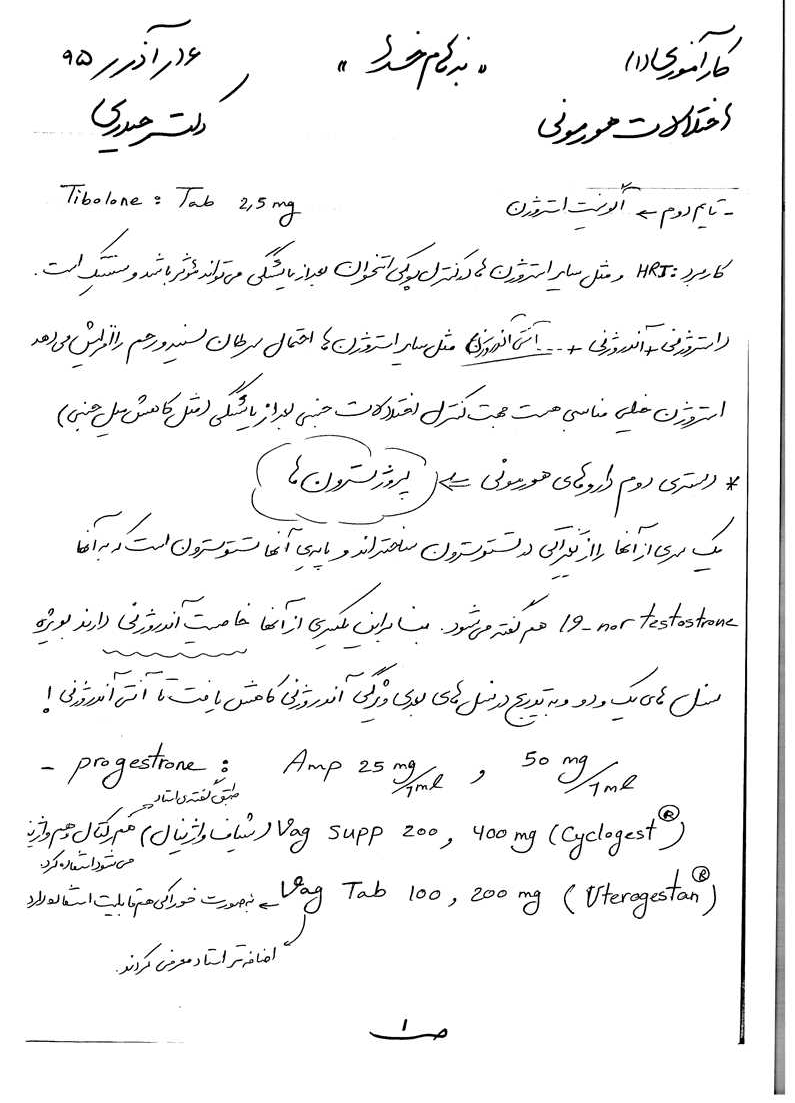 کارآموزی (۱)
« بنام خدا »
۱۶ آذر ۹۵
اختلالات هورمونی
دکتر حیدری
- تایم دوم ← آگونیست استروژن
Tibolone : Tab 2,5 mg
کاربرد : HRT و مثل سایر استروژن ها در کنترل پوکی استخوان بعد از یائسگی می تواند مؤثر باشد و سنتتیک است.
(استروژنی + آندروژنی + ... آنتی آندروژنی) مثل سایر استروژن ها احتمال سرطان سینه و رحم را افزایش می دهد
استروژن خیلی مناسبی هست جهت کنترل اختلالات جنسی بعد از یائسگی (مثل کاهش میل جنسی)
* دستری دوم داروهای هورمونی ⇐ پروژسترون ها
یک سری از آنها را از تغییراتی در تستوسترون ساخته اند و پایه ی آنها تستوسترون است که به آنها
19-nor testostrone هم گفته می شود. بنابراین یکسری از آنها خاصیت آندروژنی دارند بویژه
نسل های یک و دو و به تدریج در نسل های بعدی ویژگی آندروژنی کاهش یافت تا آنتی آندروژنی !
- progestrone : Amp 25 mg/1ml , 50 mg/1ml
طبق گفته ی استاد
Vag Supp 200, 400 mg (Cyclogest ®) (شیاف واژینال) هم رکتال و هم واژینال
می شود استفاده کرد
Vag Tab 100, 200 mg ( Uterogestan ®) ← بصورت خوراکی هم قابلیت استفاده دارد
اضافه تر استاد معرفی کردند.
ص ۱